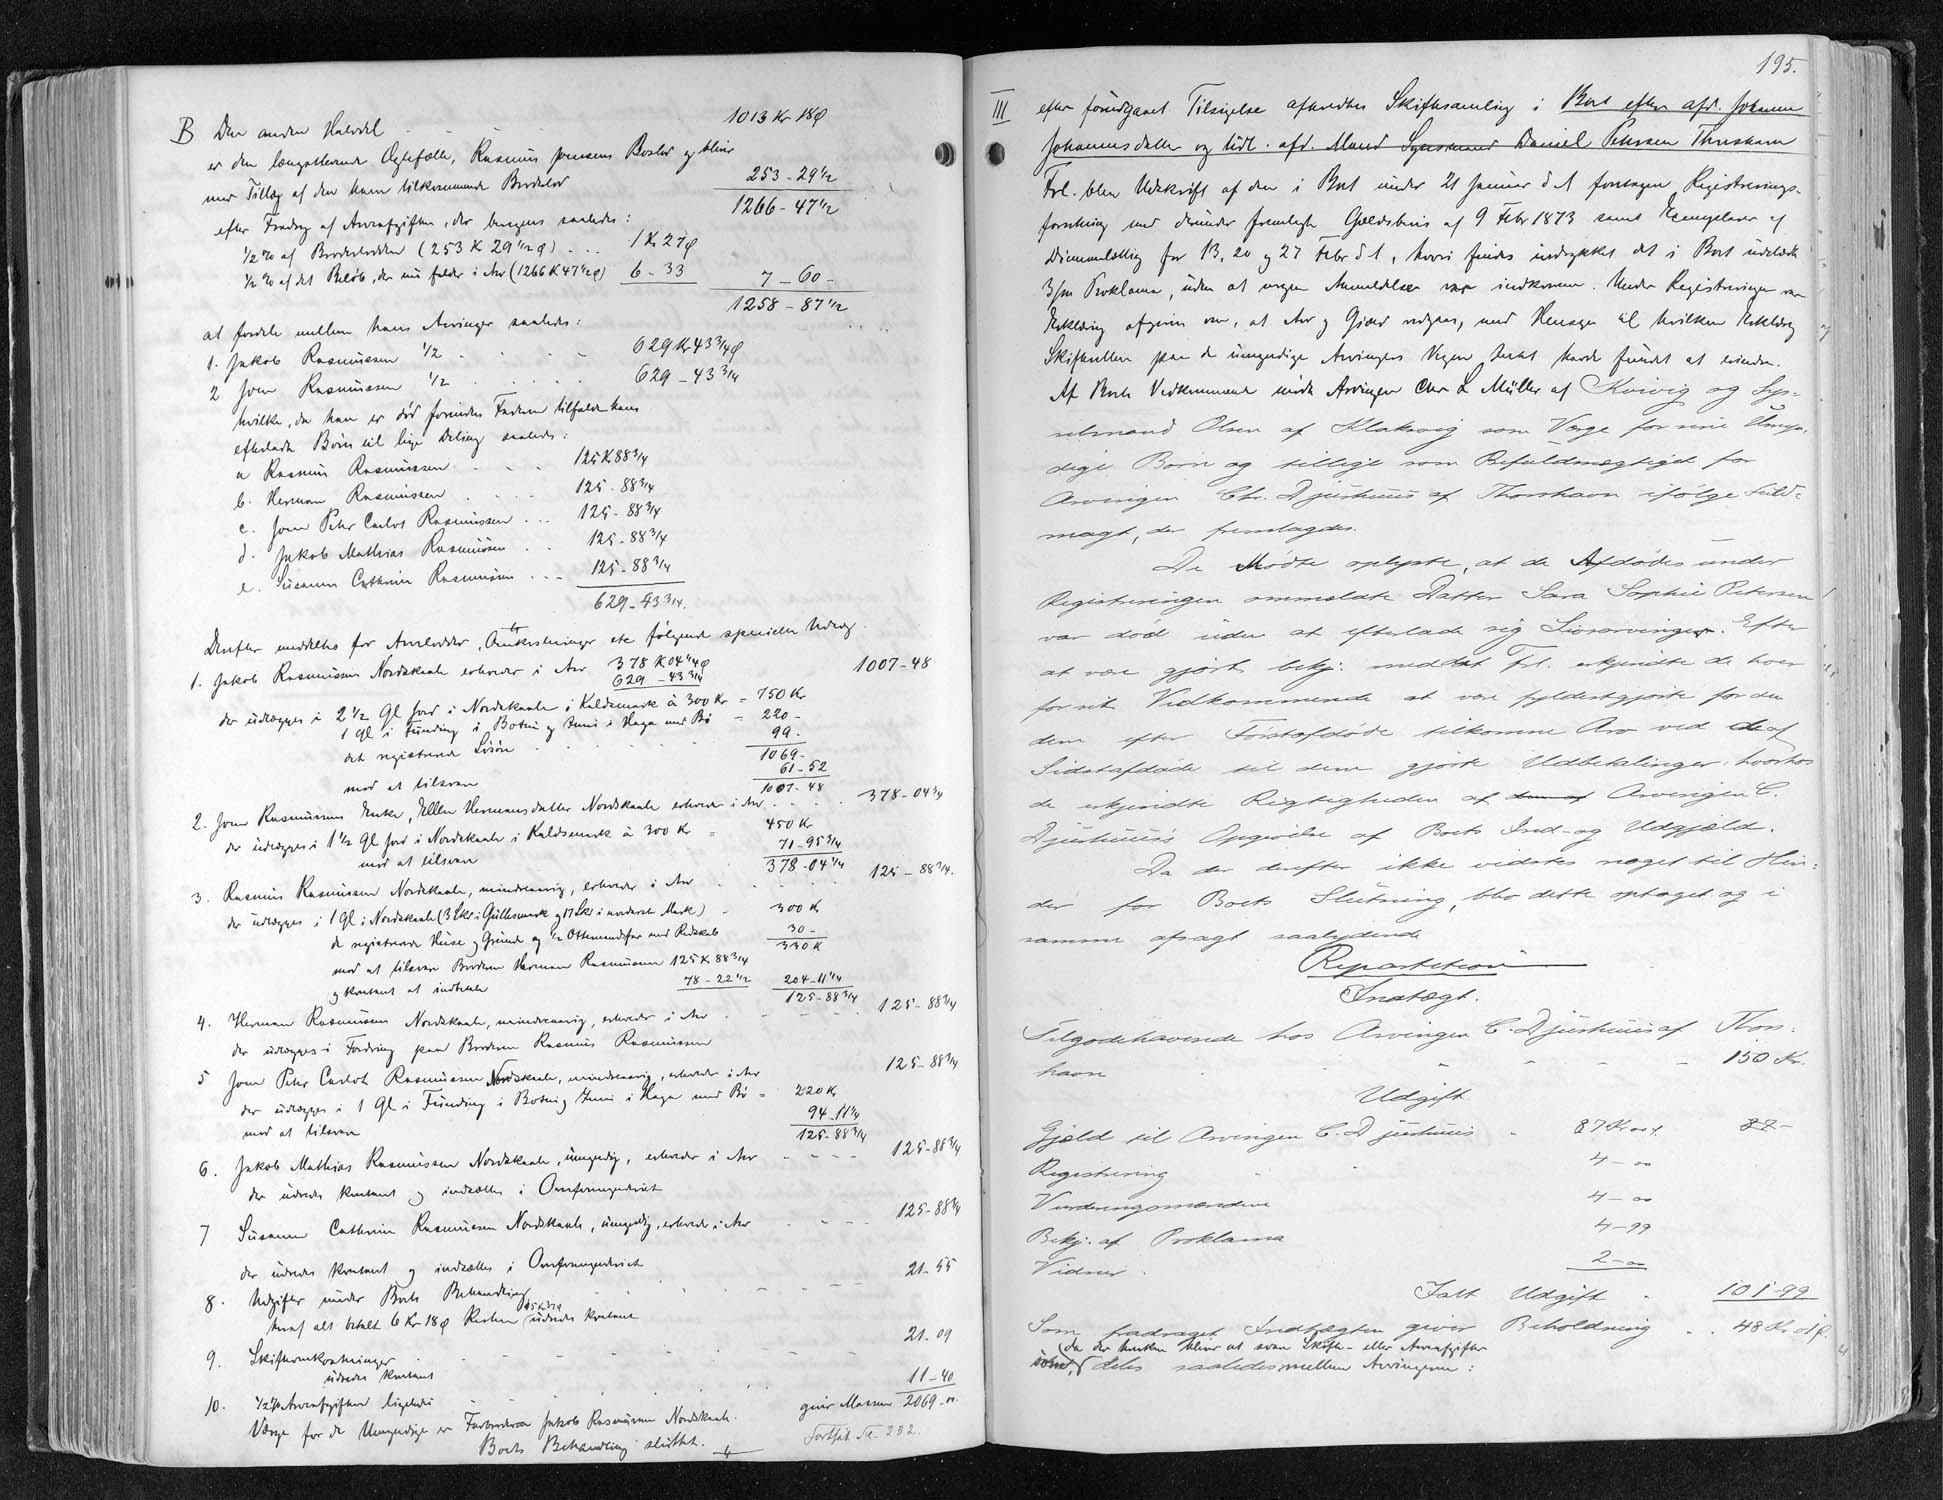 B Den anden Halvdel . . . 1013 Kr 18 Ø
er den længstlevende Ægtefælle, Rasmus Joensens Boslod og bliver
med Tillæg af den ham tilkommende Broderlod 253 - 29 1/2
1266 - 47 1/2
efter Fradrag af Arveafgiften, der beregnes saaledes:
1/2 % af Broderlodden (253 K 29 1/2 Ø) . . . 1 Kr 27 Ø
1/2 % af det Beløb, der nu falder i Arv (1266 K 47 1/2 Ø) 6 - 33 7 - 60 -
1258 - 87 1/2
at fordele mellem hans Arvinger saaledes:
1. Jakob Rasmussen 1/2 . . . . 629 Kr 43 3/4 Ø
2 Joen Rasmussen 1/2 . . . . 629 - 43 3/4
hvilke, da han er død forinden Faderen tilfalde hans
efterladte Børn til lige Deling saaledes:
a Rasmus Rasmussen . . . 125 K 88 3/4
b. Herman Rasmussen . . . 125 - 88 3/4
c. Joen Peter Carlot Rasmussen . . . 125 - 88 3/4
d. Jakob Mathias Rasmussen . . 125 - 88 3/4
e. Susanne Cathrine Rasmussen . . . 125 - 88 3/4
629 - 43 3/4.
Derefter meddeltes for Arvelodder, Omkostninger etc følgende specielle Udlæg.
1. Jakob Rasmussen Nordskaale erhverder i Arv 378 K 04 1/4 Ø 1007 - 48
629 - 43 3/4
der udlægges i 2 1/2 Gl Jord i Nordskaale i Kaldsmark à 300 Kr = 750 Kr
1 Gl i Funding i Botni og Inni i Haga med Bø = 220 -
det registrerede Løsøre . . . . 99 -
1069 -
mod at tilsvare 61 - 52
1007 - 48
2. Joen Rasmussens Enke, Ellen Hermansdatter Nordskaale erhverder i Arv . . . . 378 - 04 1/4
der udlægges i 1 1/2 Gl Jord i Nordskaale i Kaldsmark à 300 Kr = 450 Kr
mod at tilsvare 71 - 95 3/4
378 - 04 1/4
3. Rasmus Rasmussen Nordskaale, mindreaarig, erhverder i Arv . . . . 125 - 88 3/4.
der udlægges i 1 Gl i Nordskaale (3 Skd i Gullesmark og 17 Skd i nordereste Mark) - 300 Kr
de registrerede Huse og Grunde og 1/2 Ottemandsfar med Redskab 30 -
330 K
mod at tilsvare Broderen Herman Rasmussen 125 K 88 3/4
og kontant at indbetale 78 - 22 1/2 204 - 11 1/4
125 - 88 3/4
4. Herman Rasmussen Nordskaale, mindreaarig, erhverder i Arv . . . . 125 - 88 3/4
der udlægges i Fordring paa Broderen Rasmus Rasmussen
5 Joen Peter Carlot Rasmussen Nordskaale, mindreaarig, erhverder i Arv 125 - 88 3/4
der udlægges i 1 Gl i Funding i Botni og Inni i Haga med Bø = 220 Kr
mod at tilsvare 94 - 11 1/4
125 - 88 3/4
6. Jakob Mathias Rasmussen Nordskaale, umyndig, erhverder i Arv - - - - 125 - 88 3/4
der udredes kontant og indsættes i Overformynderiet
7 Susanne Cathrine Rasmussen Nordskaale, umyndig, erhverder i Arv - - - - 125 - 88 3/4
der udredes kontant og indsættes i Overformynderiet
8. Udgifter under Boets Behandling . . . . 21 - 55
heraf alt betalt 6 Kr 18 Ø Resten 15 K 37 Ø udredes kontant
9. Skifteomkostninger . . . . 21 - 09
udredes kontant
10. 1/2 % Arveafgiften ligeledes . . . . 11 - 40
giver Massen 2069 - 00.
Værge for de Umyndige er Farbroderen Jakob Rasmussen Nordskaale.
Boets Behandling sluttet. Fortsat Pa. 252.
195.
III efter forudgaaet Tilsigelse afholdtes Skiftesamling i Boet efter afd. Johanne
Johannesdatter og tidl. afd. Mand Sysselmand Daniel Petersen Thorshavn
Frl. blev Udskrift af den i Boet under 21 Januar d A foretagne Registrerings-
forretning med derunder fremlagte Gældsbevis af 9 Febr 1873 samt Exemplarer af
Dimmalætting for 13, 20 og 27 Febr d A, hvori findes indrykket det i Boet udstedte
3/m Proklama, uden at nogen Anmeldelse var indkommen. Under Registreringen var
Erklæring afgiven om, at Arv og Gjæld vedgaas, med Hensyn til hvilken Erklæring
Skifteretten paa de umyndige Arvingers Vegne Intet havde fundet at erindre.
Af Boets Vedkommende mødte Arvingen Chr L Müller af Kvivig og Sys-
selmand Olsen af Klaksvig som Værge for sine Umyn-
dige Børn og tillige som Befuldmægtiget for
Arvingen Chr. Djurhuus af Thorshavn ifølge Fuld-
magt, der fremlagdes.
De Mødte oplyste, at de Afdødes under
Registreringen ommeldte Datter Sara Sophie Petersen
var død uden at efterlade sig Livsarvinger. Efter
at være gjort bekj. med det Frl. erkjendte de hver
for sit Vidkommende at være fyldestgjorte for den
dem efter Førstafdøde tilkomne Arv ved de af
Sidstafdøde til dem gjorte Udbetalinger, hvorhos
de erkjendte Rigtigheden af Arvingen C.
Djurhuus's Opgivelse af Boets Ind- og Udgjæld.
Da der derefter ikke vidstes noget til Hin-
der for Boets Slutning, blev dette optaget og i
samme afsagt saalydende
Repartition
Indtægt.
Tilgodehavende hos Arvingen C. Djurhuus af Thors-
havn . . . . 150 Kr.
Udgift
Gjæld til Arvingen C. Djurhuus - 87 Kr 87 -
Registrering 4 - 00
Vurderingsmændene 4 - 00
Bekj. af Proklama 4 - 99
Vidner . 2 - 00
Ialt Udgift . 101 - 99
Som fradraget Indtægten giver Beholdning . . 48 Kr 01 Ø.
(da der hverken bliver at svare Skifte- eller Arveafgifter
som, deles saaledes mellem Arvingerne: